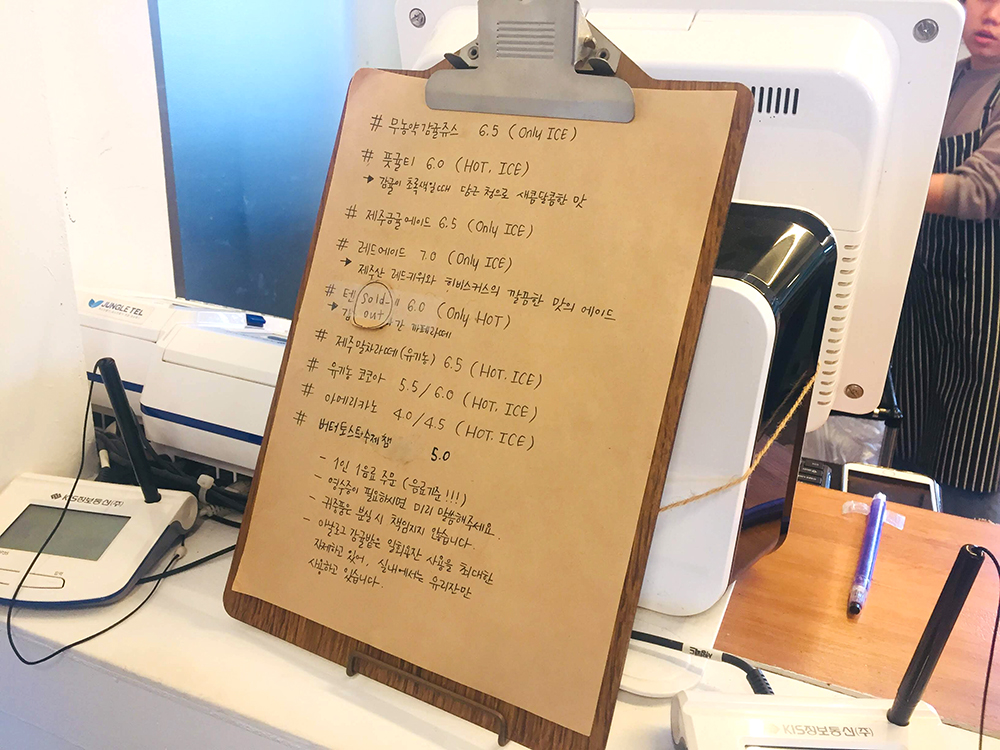 # 무농약감귤쥬스 6.5 (Only ICE)
# 풋귤티 6.0 (HOT, ICE)
→ 감귤이 초록색일때 담근 청으로 새콤달콤한 맛
# 제주금귤에이드 6.5 (Only ICE)
# 레드에이드 7.0 (Only ICE)
→ 제주산 레드키위와 히비스커스의 깔끔한 맛의 에이드
# 텐 Sold out 6.0 (Only HOT)
→ 감 까페라떼
# 제주말차라떼(유기농) 6.5 (HOT. ICE)
# 유기농 코코아 5.5/6.0 (HOT, ICE)
# 아메리카노 4.0/4.5 (HOT. ICE)
# 버터토스트+수제잼 5.0
- 1인 1음료 주문 (음료기준!!!)
- 영수증이 필요하시면 미리 말씀해주세요.
- 귀중품은 분실시 책임지지 않습니다.
- 아날로그 감귤밭은 일회용잔 사용을 최대한
자제하고 있어, 실내에서는 유리잔만
사용하고 있습니다.
JUNGLE TEL
KIS정보통신(주)
KIS정보통신(주)